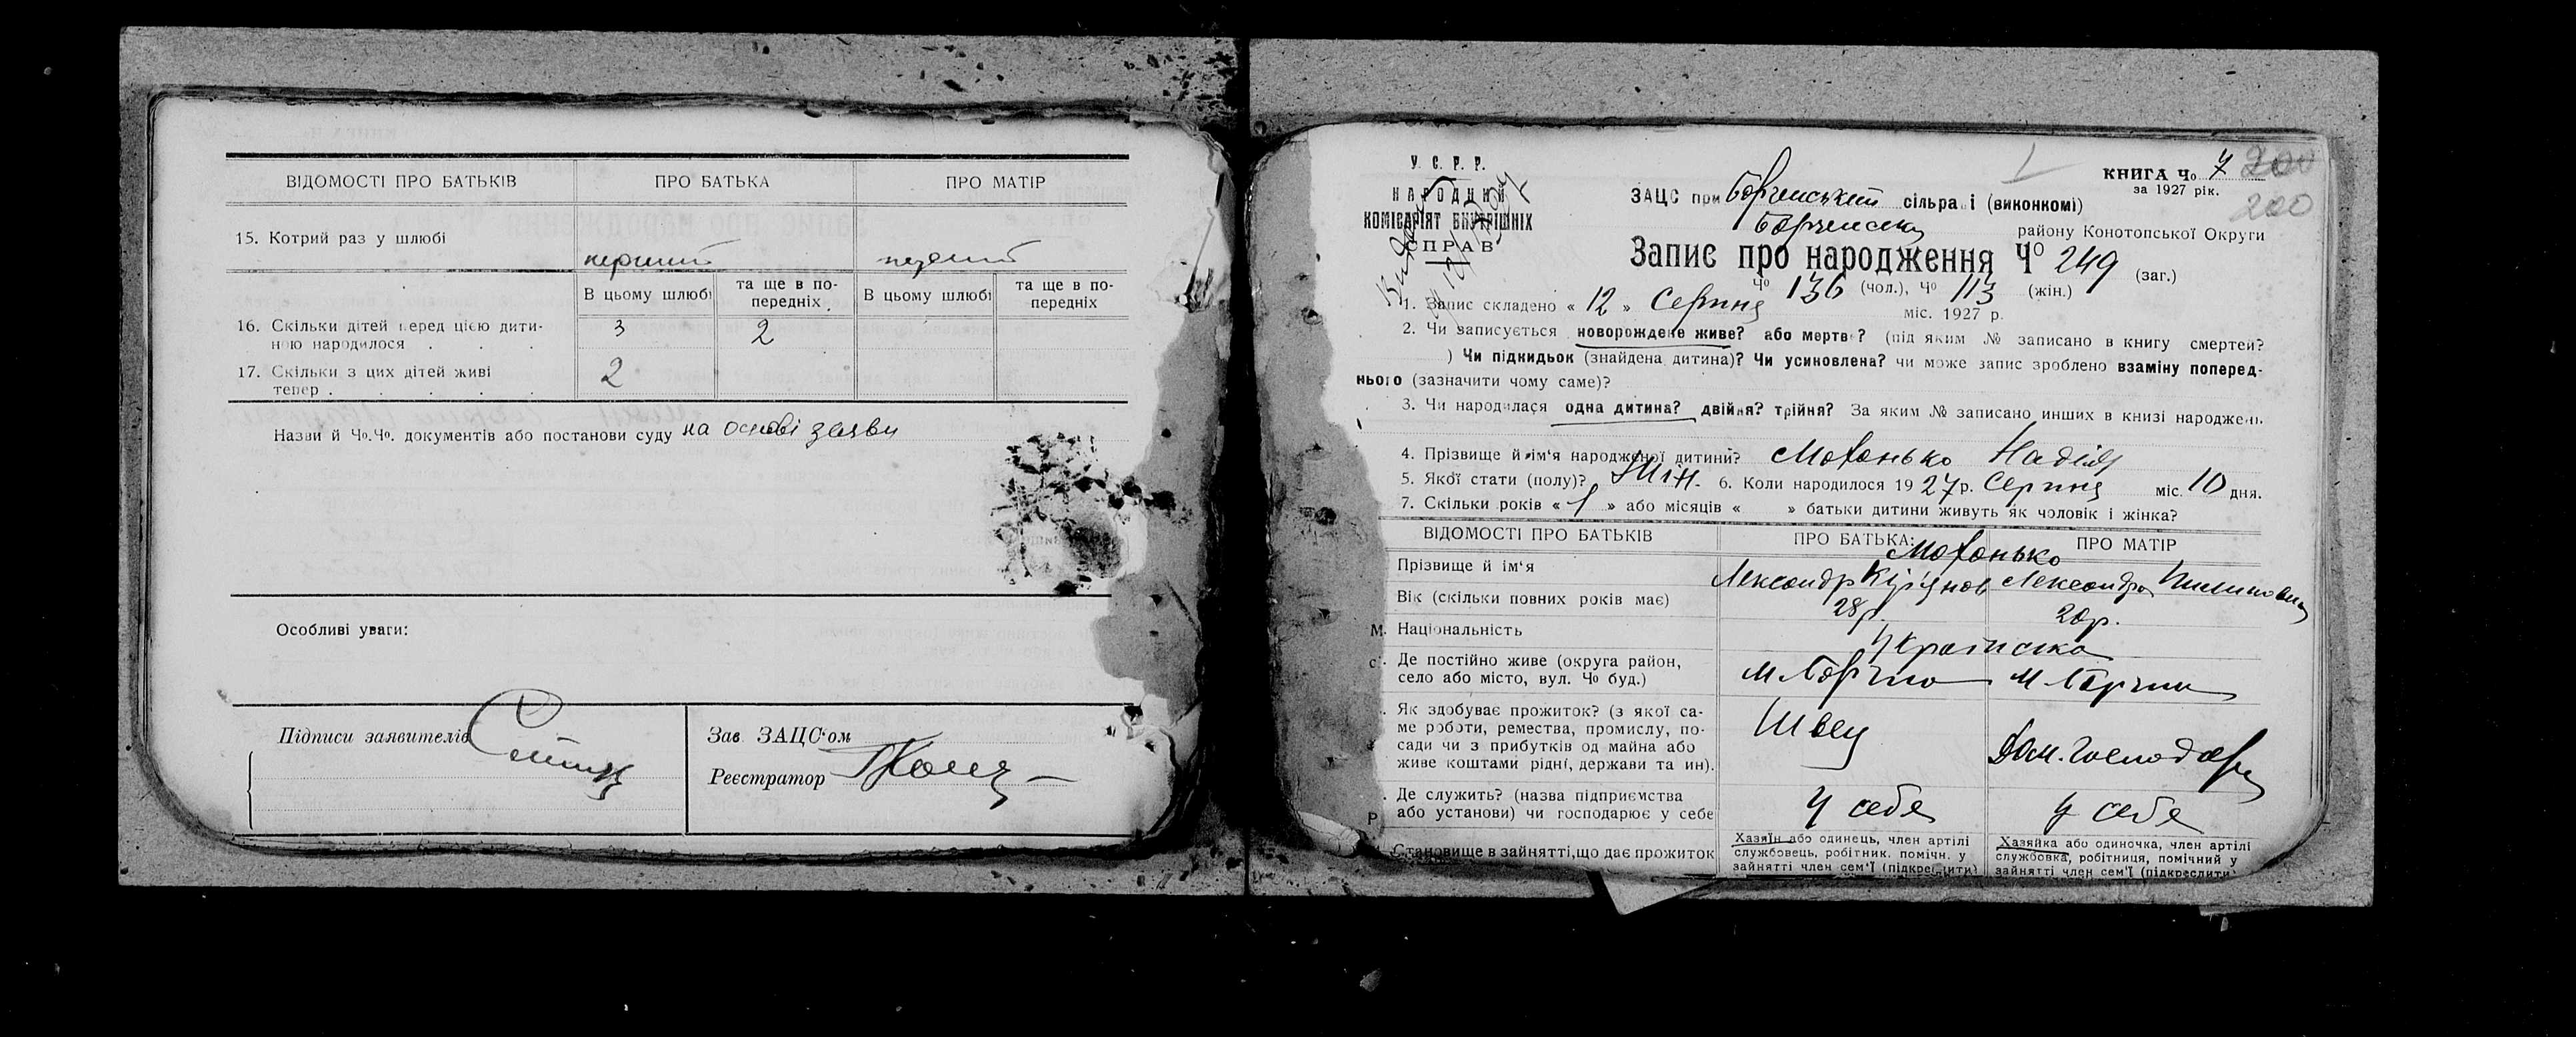 ВІДОМОСТІ ПРО БАТЬКІВ ПРО БАТЬКА ПРО МАТІР
15. Котрий раз у шлюбі
перший перший
В цьому шлюбі та ще в по-передніх В цьому шлюбі та ще в по-передніх
16. Скільки дітей перед цією дити-
ною народилося . . . 3 2
17. Скільки з цих дітей живі
тепер . . . . . 2
Назви й Чо.Чо. документів або постанови суду на основі заяви
Особливі уваги:
Підписи заявителів
Зав. ЗАЦС'ом
Реєстратор
У. С. Р. Р.
НАРОДНИЙ
КОМІСАРІЯТ ВНУТРІШНІХ
СПРАВ
КНИГА Чо 7 200
за 1927 рік.
200
ЗАЦС при Борзенський сільраді (виконкомі)
району Конотопської Округи
Запис про народження Чо 249 (заг.)
Чо 136 (чол.), Чо 113 (жін.)
1. Запис складено « 12 » Серпня міс. 1927 р.
2. Чи записується новорождене живе? або мертве? (під яким № записано в книгу смертей?
) Чи підкидьок (знайдена дитина)? Чи усиновлена? чи може запис зроблено взаміну поперед-
нього (зазначити чому саме)?
3. Чи народилася одна дитина? двійня? трійня? За яким № записано инших в книзі народжень
4. Прізвище й ім'я народженої дитини? Мохонько Надія
5. Якої стати (полу)? Жін. 6. Коли народилося 1927 р. Серпня міс. 10 дня.
7. Скільки років « 1 » або місяців « » батьки дитини живуть як чоловік і жінка?
ВІДОМОСТІ ПРО БАТЬКІВ ПРО БАТЬКА: ПРО МАТІР
Мохонько
Прізвище й ім'я Лександр Лександра
Вік (скільки повних років має) 28 р. 20 р.
Національність Українська
Де постійно живе (округа район,
село або місто, вул. Чо буд.) м Борзна м Борзна
Як здобуває прожиток? (з якої са-
ме роботи, ремества, промислу, по-
сади чи з прибутків од майна або
живе коштами рідні, держави та ин). Швець Дом. господарка
Де служить? (назва підприємства
або установи) чи господарює у себе У себе У себе
Становище в зайнятті, що дає прожиток
Хазяїн або одинець, член артілі
службовець, робітник. помічн. у
зайнятті член сем'ї (підкреслити)
Хазяйка або одиночка, член артілі
службовка, робітниця, помічний у
зайнятті член сем'ї (підкреслити)